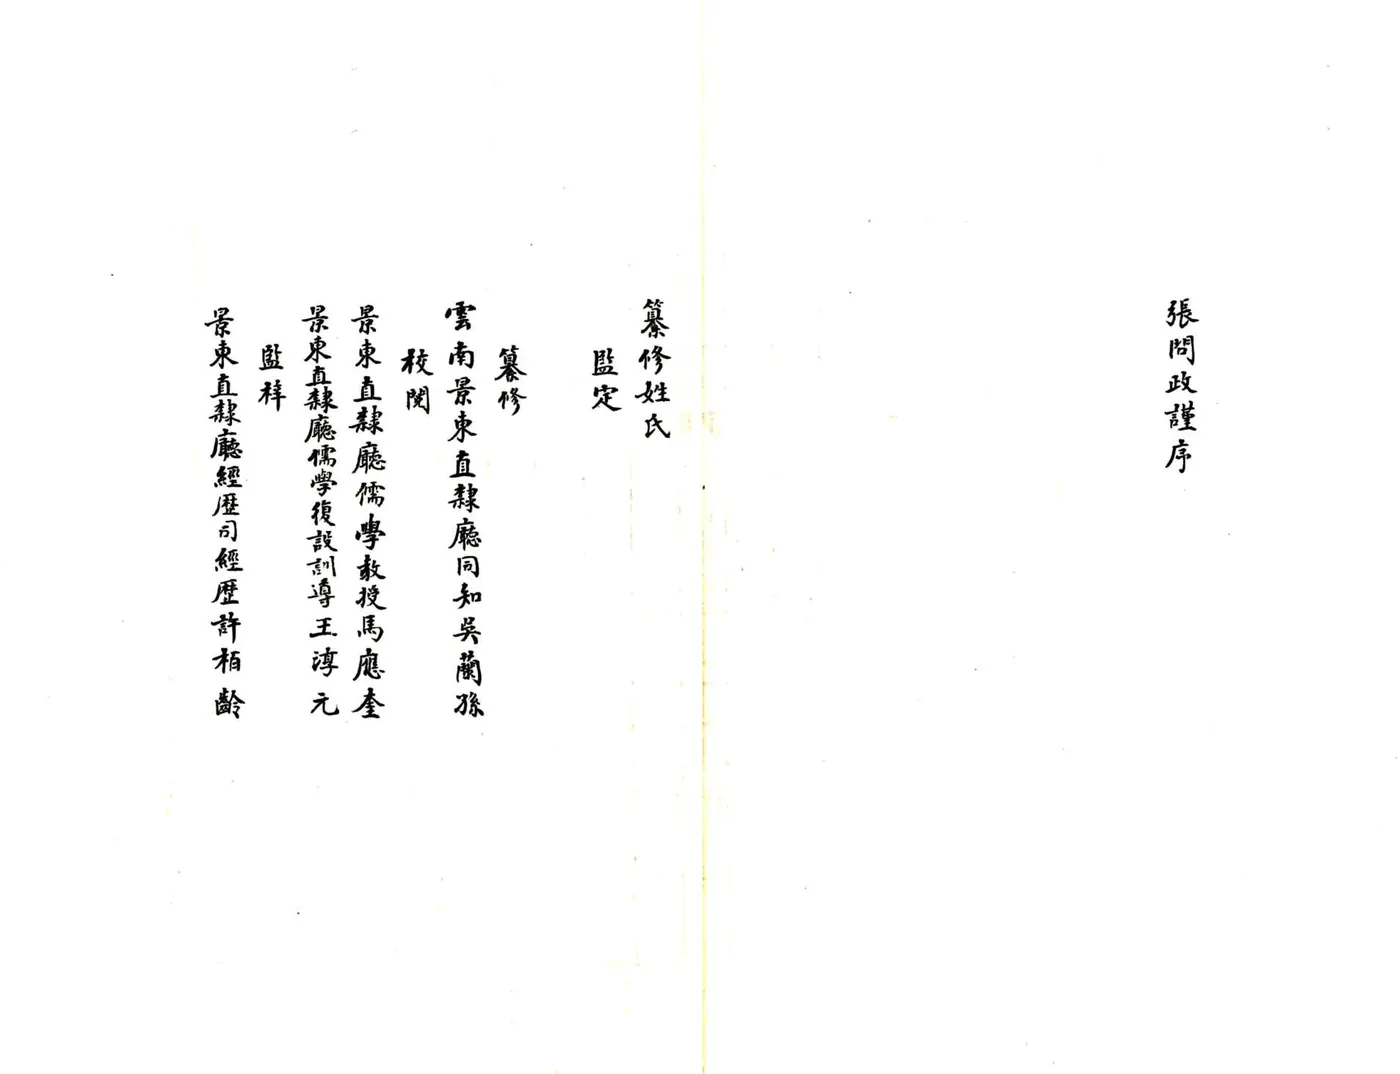 張問政謹序
纂修姓氏
監定
纂修
雲南景東直隸廳同知吳蘭孫
校閱
景東直隸廳儒學教授馬應奎
景東直隸廳儒學復設訓導王淳元
監梓
景東直隸廳經歷司經歷許栢齡